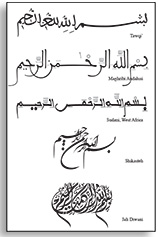 بسم الله الرحمن الرحيم
Tawqi'
بسم الله الرحمن الرحيم
Maghribi Andalusi
بسم الله الرحمن الرحيم
Sudani, West Africa
بسم الله الرحمن الرحيم
Shikasteh
بسم الله الرحمن الرحيم
Jali Diwani